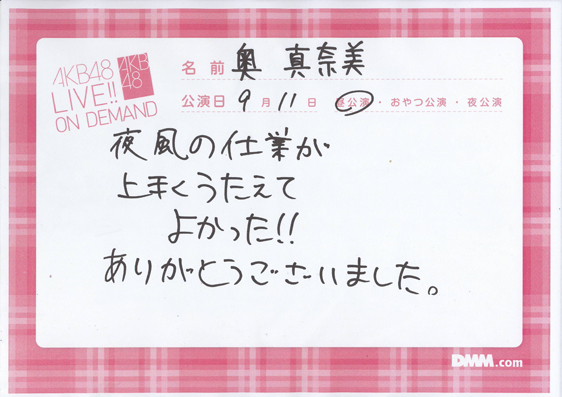 AKB48
LIVE!!
ON DEMAND
AKB
48
名前 奥 真奈美
公演日 9月11日 昼公演・おやつ公演・夜公演
夜風の仕業が
上手くうたえて
よかった!!
ありがとうございました。
DMM.com